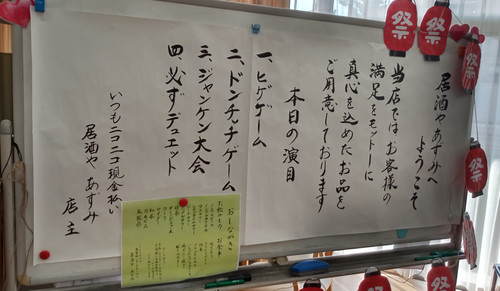 居酒やあすみへ
ようこそ
当店ではお客様の
満足をモットーに
真心を込めたお品を
ご用意しております
本日の演目
一、ヒゲゲーム
二、ドンチッチゲーム
三、ジャンケン大会
四、必ずデュエット
いつもニコニコ現金払い
居酒や あすみ
店主
おしながき
祭
祭
祭
祭
祭
祭
祭